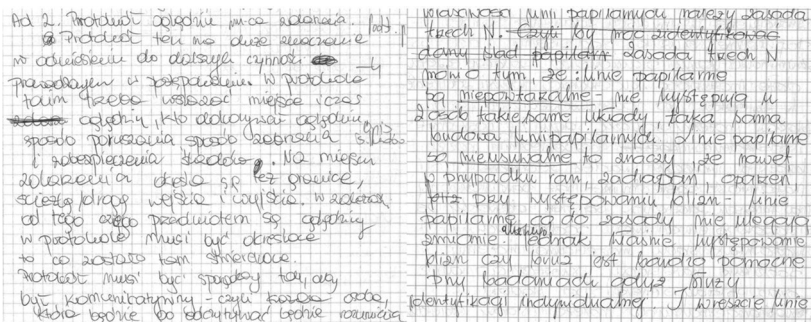 Ad 2. Protokół oględzin miejsca zdarzenia.
Protokół ten ma duże znaczenie
w odniesieniu do dalszych czynności
prowadzonych w postępowaniu. W protokole
takim trzeba wskazać miejsce i czas
oględzin, kto dokonywał oględzin,
sposób poruszania, sposób zebrania
i zabezpieczenia śladów. Na miejscu
zdarzenia określa się też granice,
ścieżkę/drogę wejścia i wyjścia. W zależności
od tego czego przedmiotem są oględziny
w protokole musi być określone
to co zostało tam stwierdzone.
Protokół musi być spisany tak, aby
być komunikatywny - czyli każda osoba,
która będzie go odczytywać będzie rozumiała
właściwości linii papilarnych należy zasada
trzech N. Czyli by móc zidentyfikować
dany ślad papilarn zasada trzech N
mówi o tym, że: linie papilarne
są niepowtarzalne - nie występują u
2 osób takie same układy, taka sama
budowa linii papilarnych. Linie papilarne
są nieusuwalne to znaczy, że nawet
w przypadku ran, zadrapań, oparzeń,
przy występowaniu blizn - linie
papilarne co do zasady nie ulegają
zmianie jednak właśnie występowanie
blizn czy bruzd jest bardzo pomocne
przy badaniach gdyż służy
identyfikacji indywidualnej. I wreszcie linie